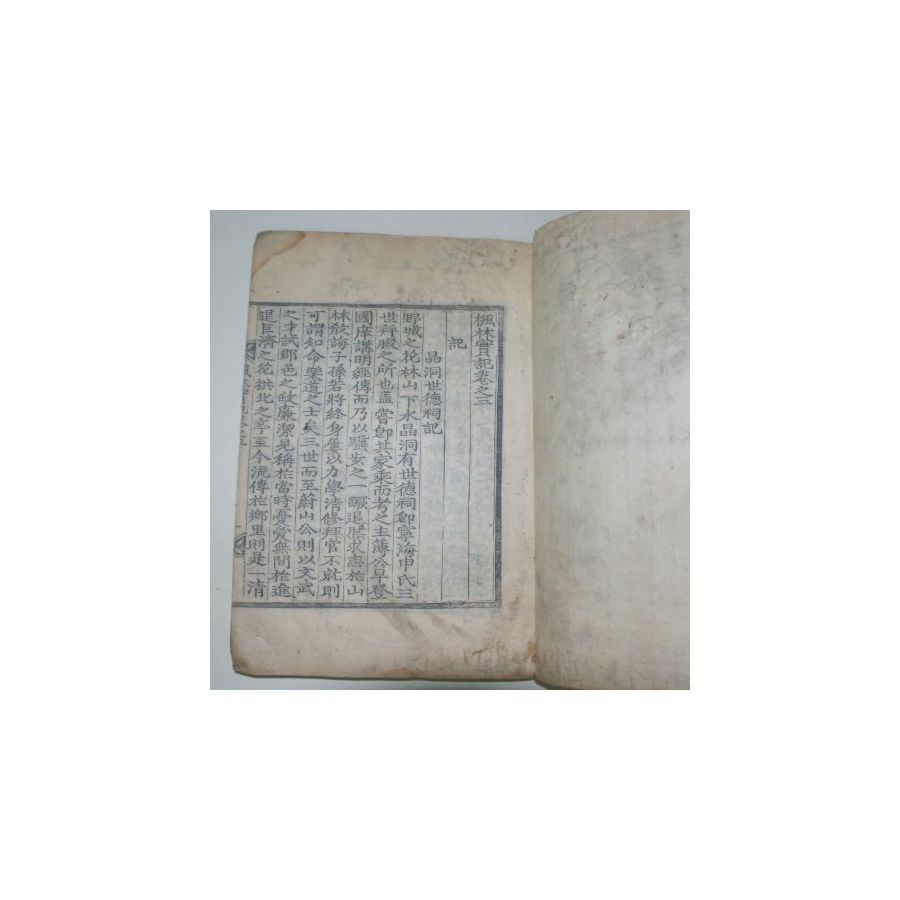 楓林實記卷之三
記
晶洞世德祠記
野城之花林山下水晶洞有世德祠卽寧海申氏三
世斧腶之所也盡嘗卽其家乘而考之主薄公早登
國庠講明經傳而乃以驥步之一蹶退歷求志於山
林敎誨子孫若將終身屢以力學清修拜官不就則
可謂知命樂道之士矣三世而至蔚山公則以文武
之才試郡邑之政廉潔見稱於當時憂愛無間於進
退巨濟之花拱北之亭至今流傳於鄕里則是一清